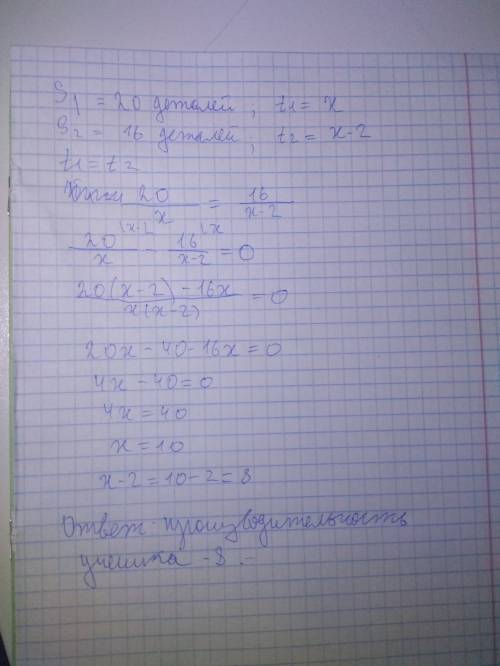 S₁ = 20 деталей ; t₁ = x
S₂ = 16 деталей ; t₂ = x-2
t₁ = t₂
20/x = 16/x-2
20/x ⁽ˣ⁻² - 16/x-2 ⁽ˣ = 0
20(x-2)-16x/x(x-2) = 0
20x-40-16x=0
4x-40=0
4x=40
x=10
x-2=10-2=8
Ответ: производительность
ученика -8.